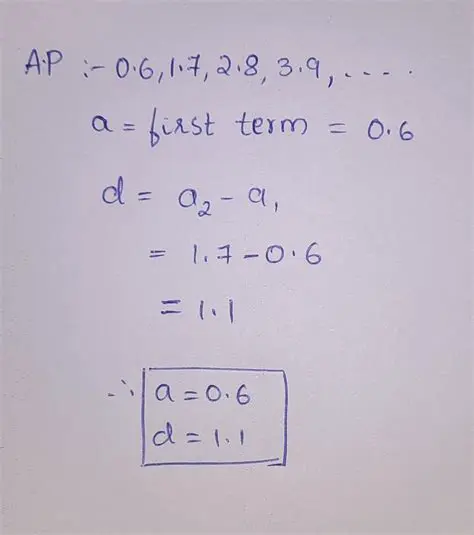 A.P :- 0.6, 1.7, 2.8, 3.9, ....
a = first term = 0.6
d = a₂ - a₁
= 1.7 - 0.6
= 1.1
∴ a = 0.6
d = 1.1